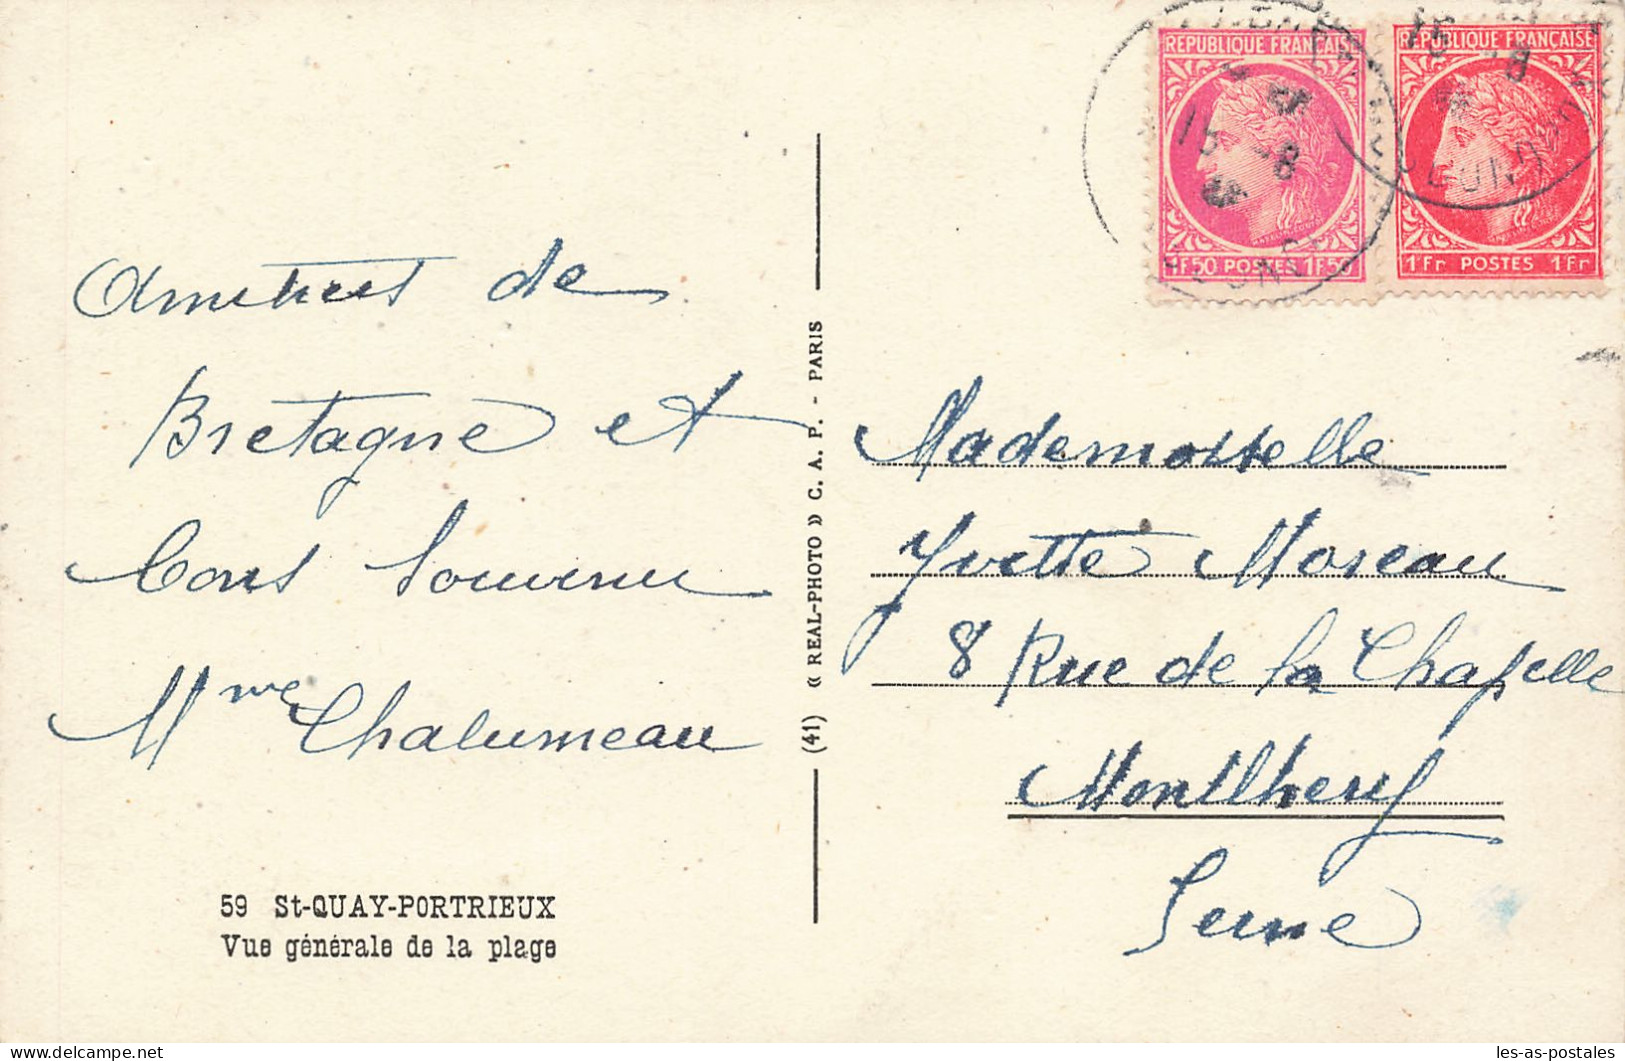 Amities de
Bretagne et
bons souvenirs
Mme Chalumeau
59 St-QUAY-PORTRIEUX
Vue générale de la plage
(41) « REAL-PHOTO » C. A. P. - PARIS
REPUBLIQUE FRANÇAISE
1F50 POSTES 1F50
REPUBLIQUE FRANÇAISE
1Fr POSTES 1Fr
15 -8
15 -8
Mademoiselle
Yvette Moreau
8 Rue de la Chapelle
Montlhery
Seine
les-as-postales